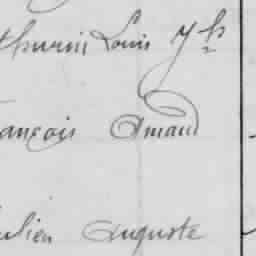 thurin Louis Jh
ançois Amand
ulien Auguste